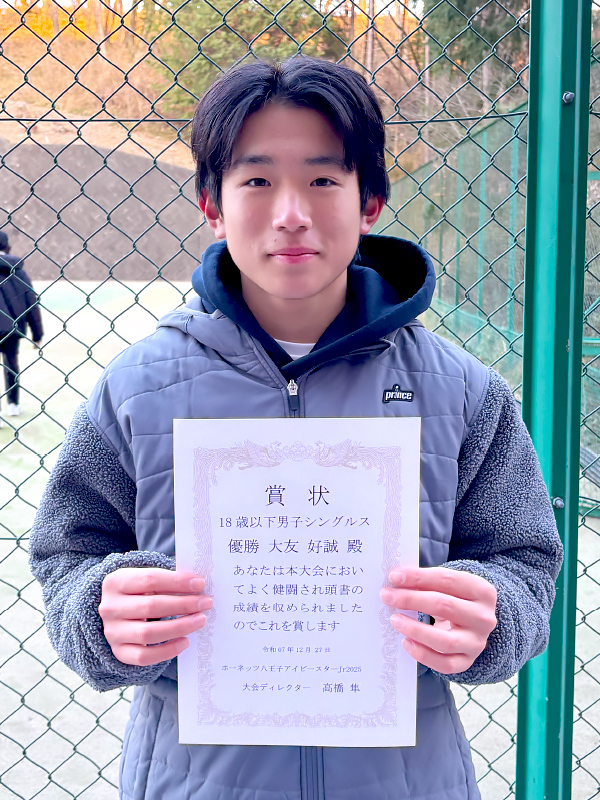 prince
賞 状
18歳以下男子シングルス
優勝 大友 好誠 殿
あなたは本大会におい
てよく健闘され頭書の
成績を収められました
のでこれを賞します
令和07年12月27日
ホーネッツ八王子アイビースターJr2025
大会ディレクター 高橋 隼